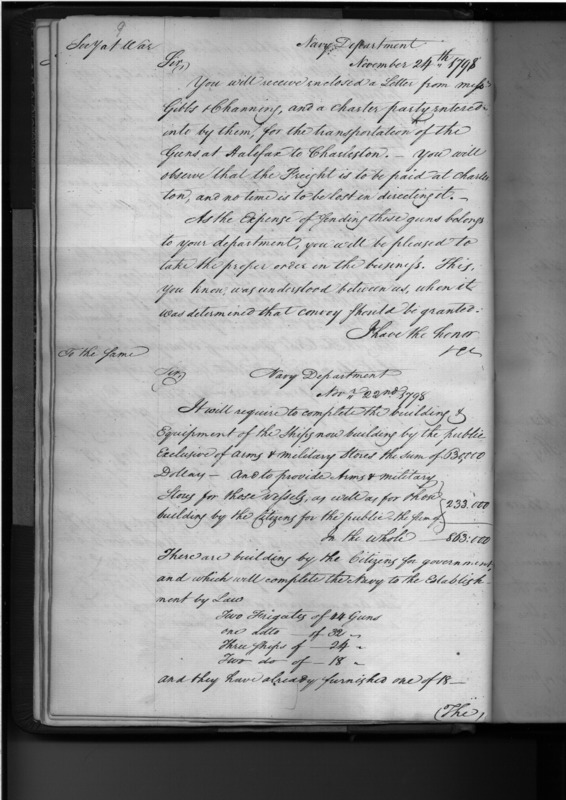 9
Secy at War
Navy Department
November 24th 1798
Sir,
You will receive enclosed a Letter from Messrs
Gibbs & Channing, and a charter party entered
into by them, for the transportation of the
Guns at Halifax to Charleston. — You will
observe that the Freight is to be paid at Charles
ton, and no time is to be lost in directing it. —
As the Expense of sending these guns belongs
to your department, you will be pleased to
take the proper order in the business. This,
you know, was understood between us, when it
was determined that convoy should be granted.
I have the honor
&c
To the Same
Sir,
Navy Department
Nov. 22nd 1798
It will require to complete the building &
Equipment of the Ships now building by the public
Exclusive of Arms & military Stores the sum of
Dollars — And to provide Arms & military
Stores for those Vessels, as well as for those
building by the Citizens for the public the sum of
233.000
In the whole — 863.000
There are building by the Citizens for government,
and which will complete the Navy to the Establish
ment by Law
Two Frigates of 44 Guns
one ditto — of 32 "
Three ships of — 24 "
Two do of — 18 "
and they have already furnished one of 18 —
(The)